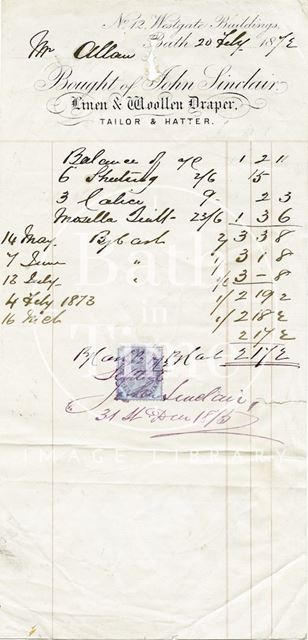 No. 12, Westgate Buildings,
Bath 20 July 1872
Mr Allan
Bought of John Sinclair,
Linen & Woollen Draper,
TAILOR & HATTER.
Balance of a/c 1 2 11
6 Sheeting 2/6 15
3 Calico 9 2 3
23/6 1 3 6
14 May By Cash 2/ 3 3 8
7 June " 1/ 3 1 8
" 3 - 8
4 July 1873 1/ 2 19 2
16 1/ 2 18 2
2 17 2
2 17 2
Sinclair
31st Decr
Bath in Time
IMAGE LIBRARY